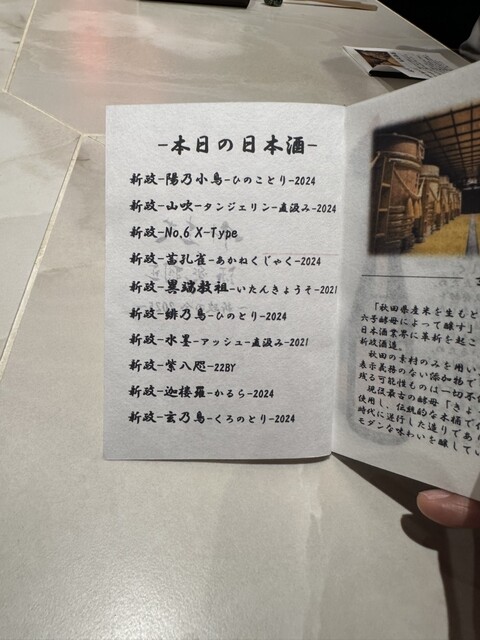 -本日の日本酒-
新政-陽乃小鳥-ひのことり-2024
新政-山吹-タンジェリン-直汲み-2024
新政-No.6 X-Type
新政-茜孔雀-あかねくじゃく-2024
新政-異端教祖-いたんきょうそ-2021
新政-緋乃鳥-ひのとり-2024
新政-水墨-アッシュ-直汲み-2021
新政-紫八咫-22BY
新政-迦楼羅-かるら-2024
新政-玄乃鳥-くろのとり-2024
「秋田県産米を生もと
六号酵母によって醸す」
日本酒業界に革新を起こ
新政酒造。
秋田の素材のみを用い
表示義務のない添加物で
残る可能性ものは一切不使
現役最古の酵母「きょ
使用し、伝統的な木桶で仕
時代に逆行した造りであり
モダンな味わいを醸してい